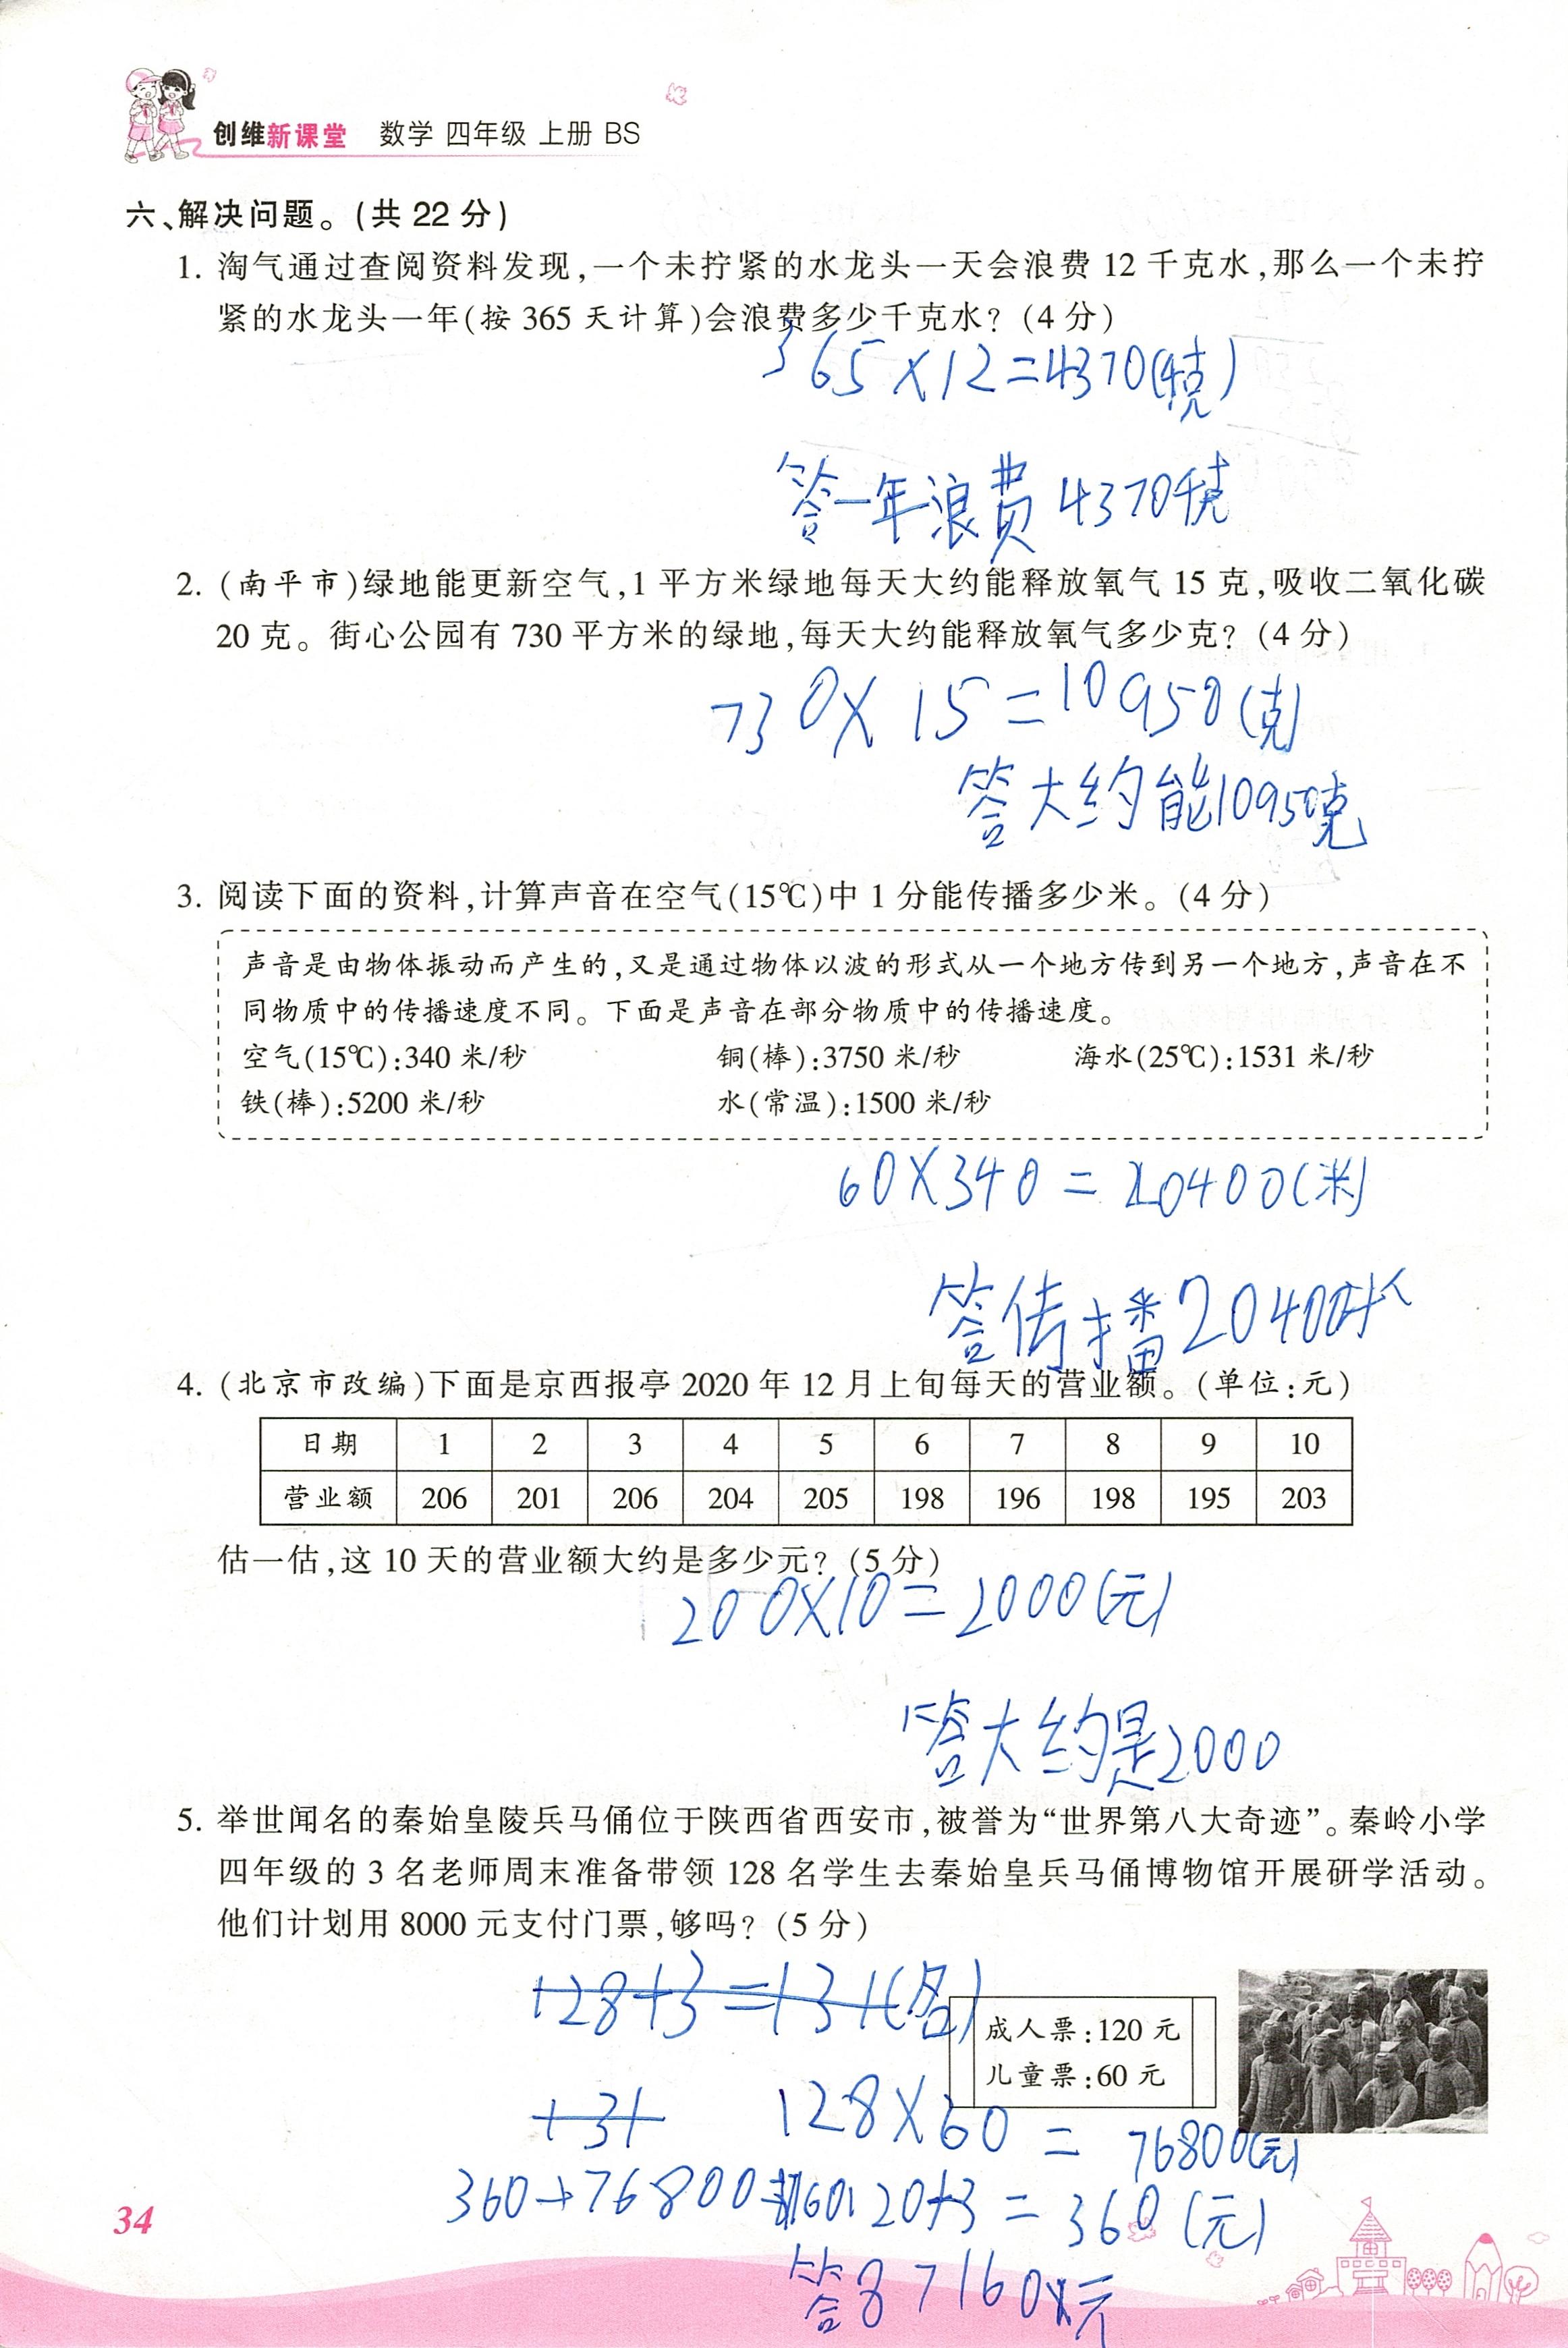 创维新课堂 数学 四年级 上册 BS
六、解决问题。(共 22 分)
1. 淘气通过查阅资料发现,一个未拧紧的水龙头一天会浪费 12 千克水,那么一个未拧
紧的水龙头一年(按 365 天计算)会浪费多少千克水? (4 分)
365×12=4370(千克)
答一年浪费4370千克
2. (南平市)绿地能更新空气,1 平方米绿地每天大约能释放氧气 15 克,吸收二氧化碳
20 克。街心公园有 730 平方米的绿地,每天大约能释放氧气多少克? (4 分)
730×15=10950(克)
答大约能10950克
3. 阅读下面的资料,计算声音在空气(15℃)中 1 分能传播多少米。(4 分)
声音是由物体振动而产生的,又是通过物体以波的形式从一个地方传到另一个地方,声音在不
同物质中的传播速度不同。下面是声音在部分物质中的传播速度。
空气(15℃):340 米/秒 铜(棒):3750 米/秒 海水(25℃):1531 米/秒
铁(棒):5200 米/秒 水(常温):1500 米/秒
60×340=20400(米)
答传播20400米
4. (北京市改编)下面是京西报亭 2020 年 12 月上旬每天的营业额。(单位:元)
日期 1 2 3 4 5 6 7 8 9 10
营业额 206 201 206 204 205 198 196 198 195 203
估一估,这 10 天的营业额大约是多少元? (5 分)
200×10=2000(元)
答大约是2000
5. 举世闻名的秦始皇陵兵马俑位于陕西省西安市,被誉为“世界第八大奇迹”。秦岭小学
四年级的 3 名老师周末准备带领 128 名学生去秦始皇兵马俑博物馆开展研学活动。
他们计划用 8000 元支付门票,够吗? (5 分)
128+3=131(名)
成人票:120 元
儿童票:60 元
131 128×60=76800(元)
360+76800 120×3=360(元)
答 77160 元
34